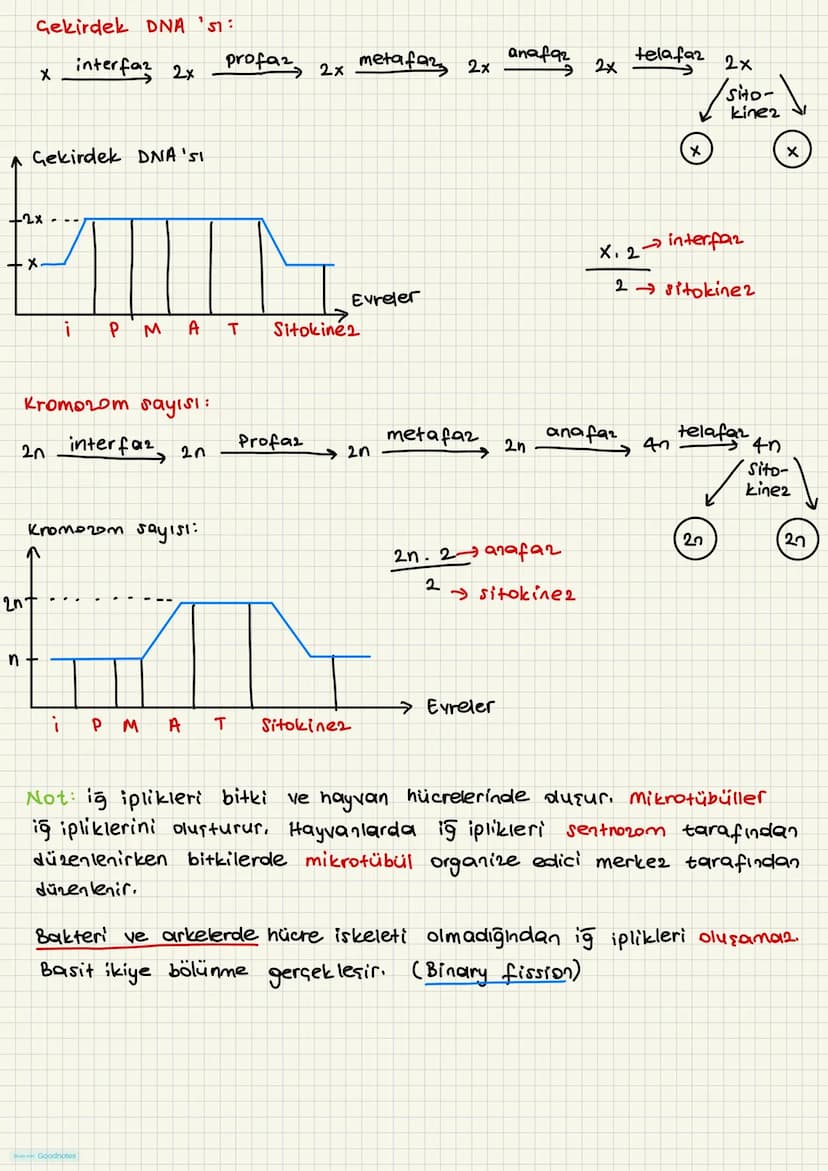 Çekirdek DNA 'sı:
x interfaz 2x profaz 2x metafaz 2x anafaz 2x telafaz 2x
Sito-
kinez
x x
Çekirdek DNA'sı
2x
x
Evreler
i P M A T Sitokinez
x. 2 → interfaz
2 → sitokinez
Kromozom sayısı:
2n interfaz 2n Profaz 2n metafaz 2n anafaz 4n telafaz 4n
Sito-
kinez
2n 2n
Kromozom sayısı:
2n
n
Evreler
i P M A T Sitokinez
2n. 2 → anafaz
2 → sitokinez
Not: iğ iplikleri bitki ve hayvan hücrelerinde oluşur. Mikrotübüller
iğ ipliklerini oluşturur. Hayvanlarda iğ iplikleri sentrozom tarafından
düzenlenirken bitkilerde mikrotübül organize edici merkez tarafından
düzenlenir.
Bakteri ve arkelerde hücre iskeleti olmadığından iğ iplikleri oluşamaz.
Basit ikiye bölünme gerçekleşir. (Binary fission)
Goodnotes